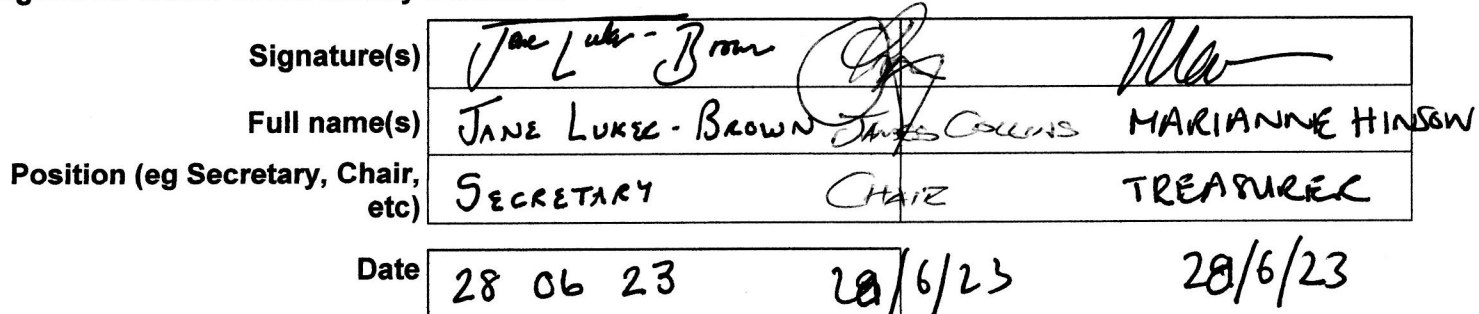 Signature(s) Jane Luker-Brown
Full name(s) JANE LUKER-BROWN JAMES COLLINS MARIANNE HINSON
Position (eg Secretary, Chair, etc) SECRETARY CHAIR TREASURER
Date 28 06 23 28/6/23 28/6/23